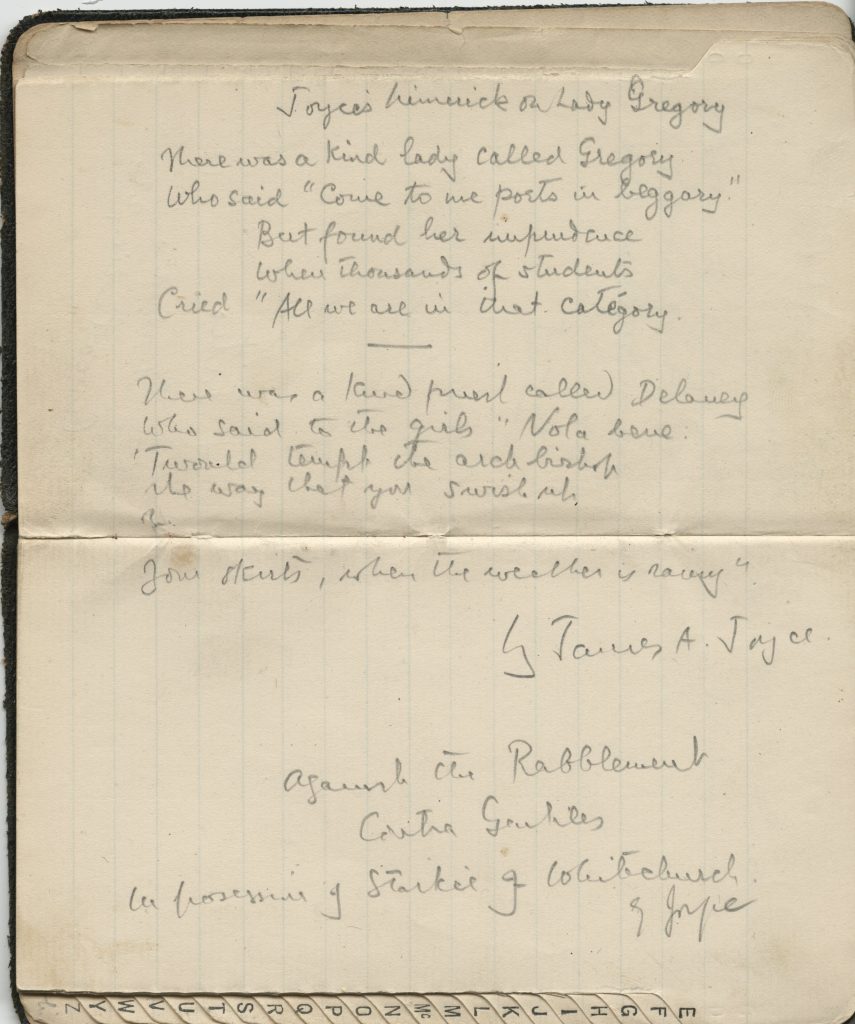 Joyce's Limerick on Lady Gregory
There was a kind lady called Gregory
Who said "Come to me poets in beggary."
But found her imprudence
When thousands of students
Cried "All we are in that category.
There was a kind priest called Delaney
Who said to the girls "Nota bene:
'Twould tempt the archbishop
the way that you swish up
Your skirts, when the weather is rainy"
by James A. Joyce.
Against the Rabblement
Contra Gentiles
In possession of Starkie of Whitechurch.
by Joyce
E
F
G
H
I
J
K
L
M
Mc
N
O
P
Q
R
S
T
U
V
W
Y
Z